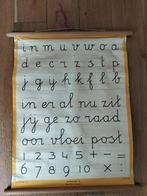 i n m u v w o a
d e c r z s t p
j g y h k f l b
in er al nu zit
jy ge zo raad
oor vloei post
1 2 3 4 5 + - =
6 7 8 9 10 × :